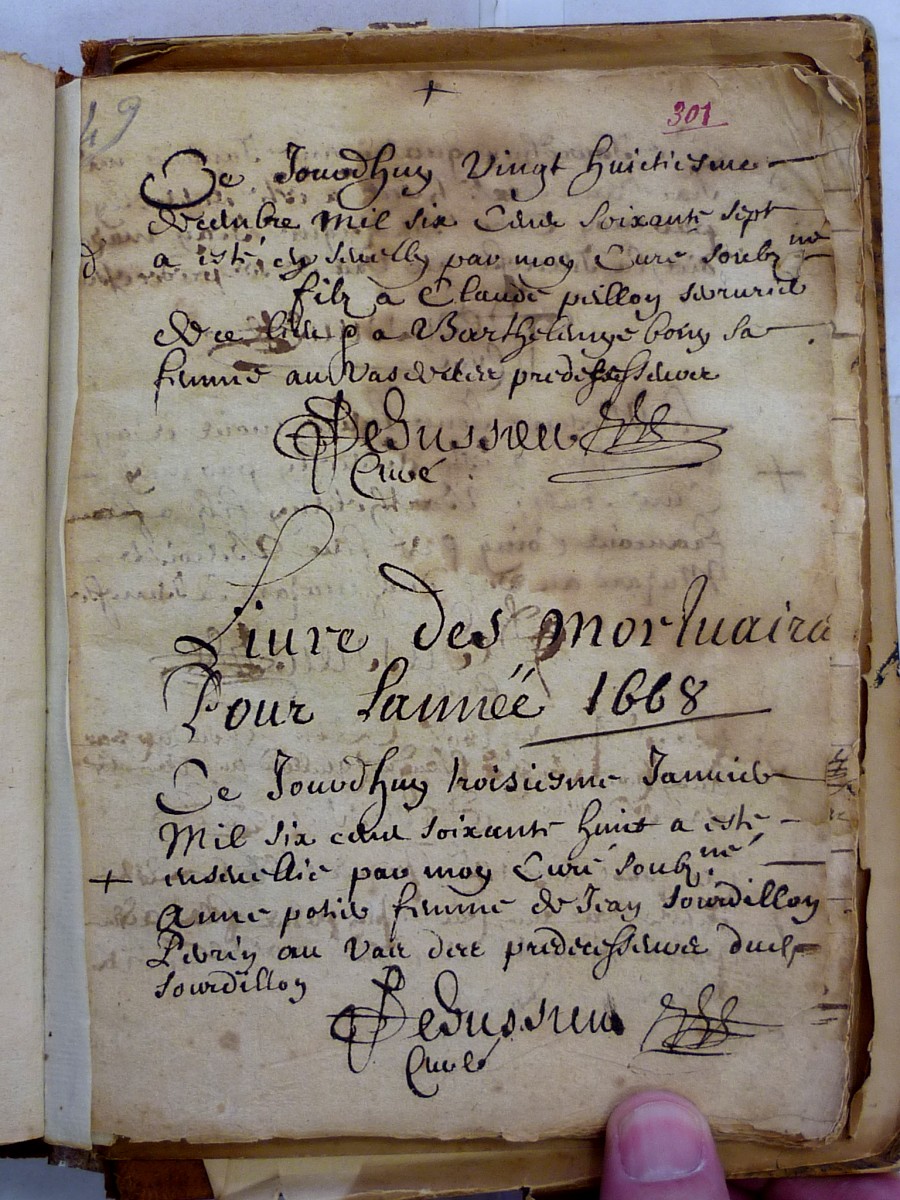 49
301
Ce Jourdhuy Vingt huictiesme
decembre Mil six Cent soixante sept
a esté ensevelly par moy Curé soubzné
filz à Claude peilloy serrurier
de ce lieu & a Barthelemye bony sa
femme au Vas de leur predecesseurs
Curé
Livre des mortuaires
Pour L'année 1668
Ce Jourdhuy troisiesme Janvier
Mil six cent soixante huict a esté
ensevelie par moy Curé soubzné
Anne potier femme de Jean Sourdillon
Perrin au Vas des predecesseurs dud
Sourdillon
Curé